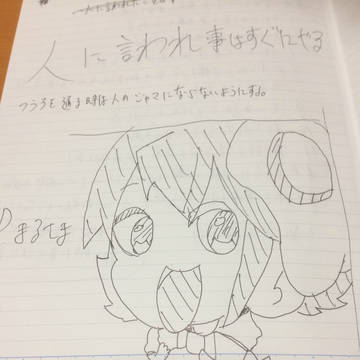 人に言われ事はすぐにやる
つうろを通る時は人のジャマにならないようにす。
まるたま